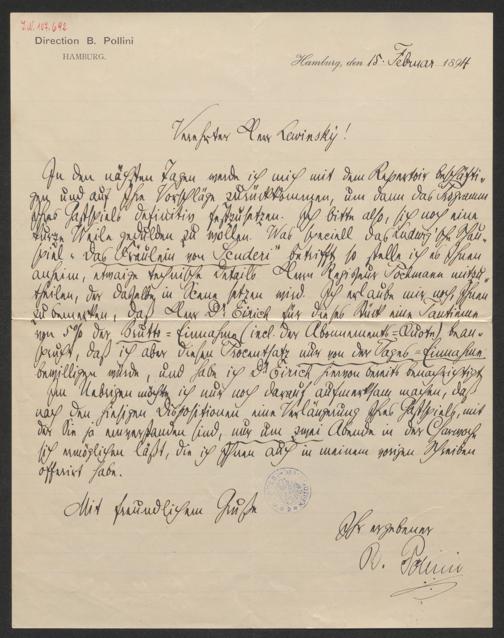 I.N. 107.692
Direction B. Pollini
HAMBURG.
Hamburg, den 15. Februar 1894
Verehrter Herr Lewinsky!
In den nächsten Tagen werde ich mich mit dem Repertoir beschäfti-
gen und auf Ihre Vorschläge zurückkommen, um dann das Programm
Ihres Gastspiels definitiv festzusetzen. Ich bitte also, sich noch eine
kurze Weile gedulden zu wollen. Was speciell das Ludwig'sche Schau-
spiel „Das Fräulein von Scuderi" betrifft so stelle ich es Ihnen
anheim, etwaige technische Details Herrn Regisseur mitzu-
theilen, der dasselbe in Scene setzen wird. Ich erlaube mir noch Ihnen
zu bemerken, daß Herr Dr Eirich für dieses Stück eine Tantième
von 5% der Brutto-Einnahme (incl. der Abonnements-Quote) bean-
sprucht, daß ich aber diesen Procentsatz nur von der Tages-Einnahme
bewilligen würde, und habe ich Dr Eirich hiervon bereits benachrichtigt.
Im Uebrigen möchte ich nur noch darauf aufmerksam machen, daß
nach den hiesigen Dispositionen eine Verlängerung Ihres Gastspiels, mit
der Sie ja einverstanden sind, nur um zwei Abende in der Charwoche
sich ermöglichen läßt, die ich Ihnen auch in meinem vorigen Schreiben
offerirt habe.
Mit freundlichem Gruße
Ihr ergebener
B. Pollini